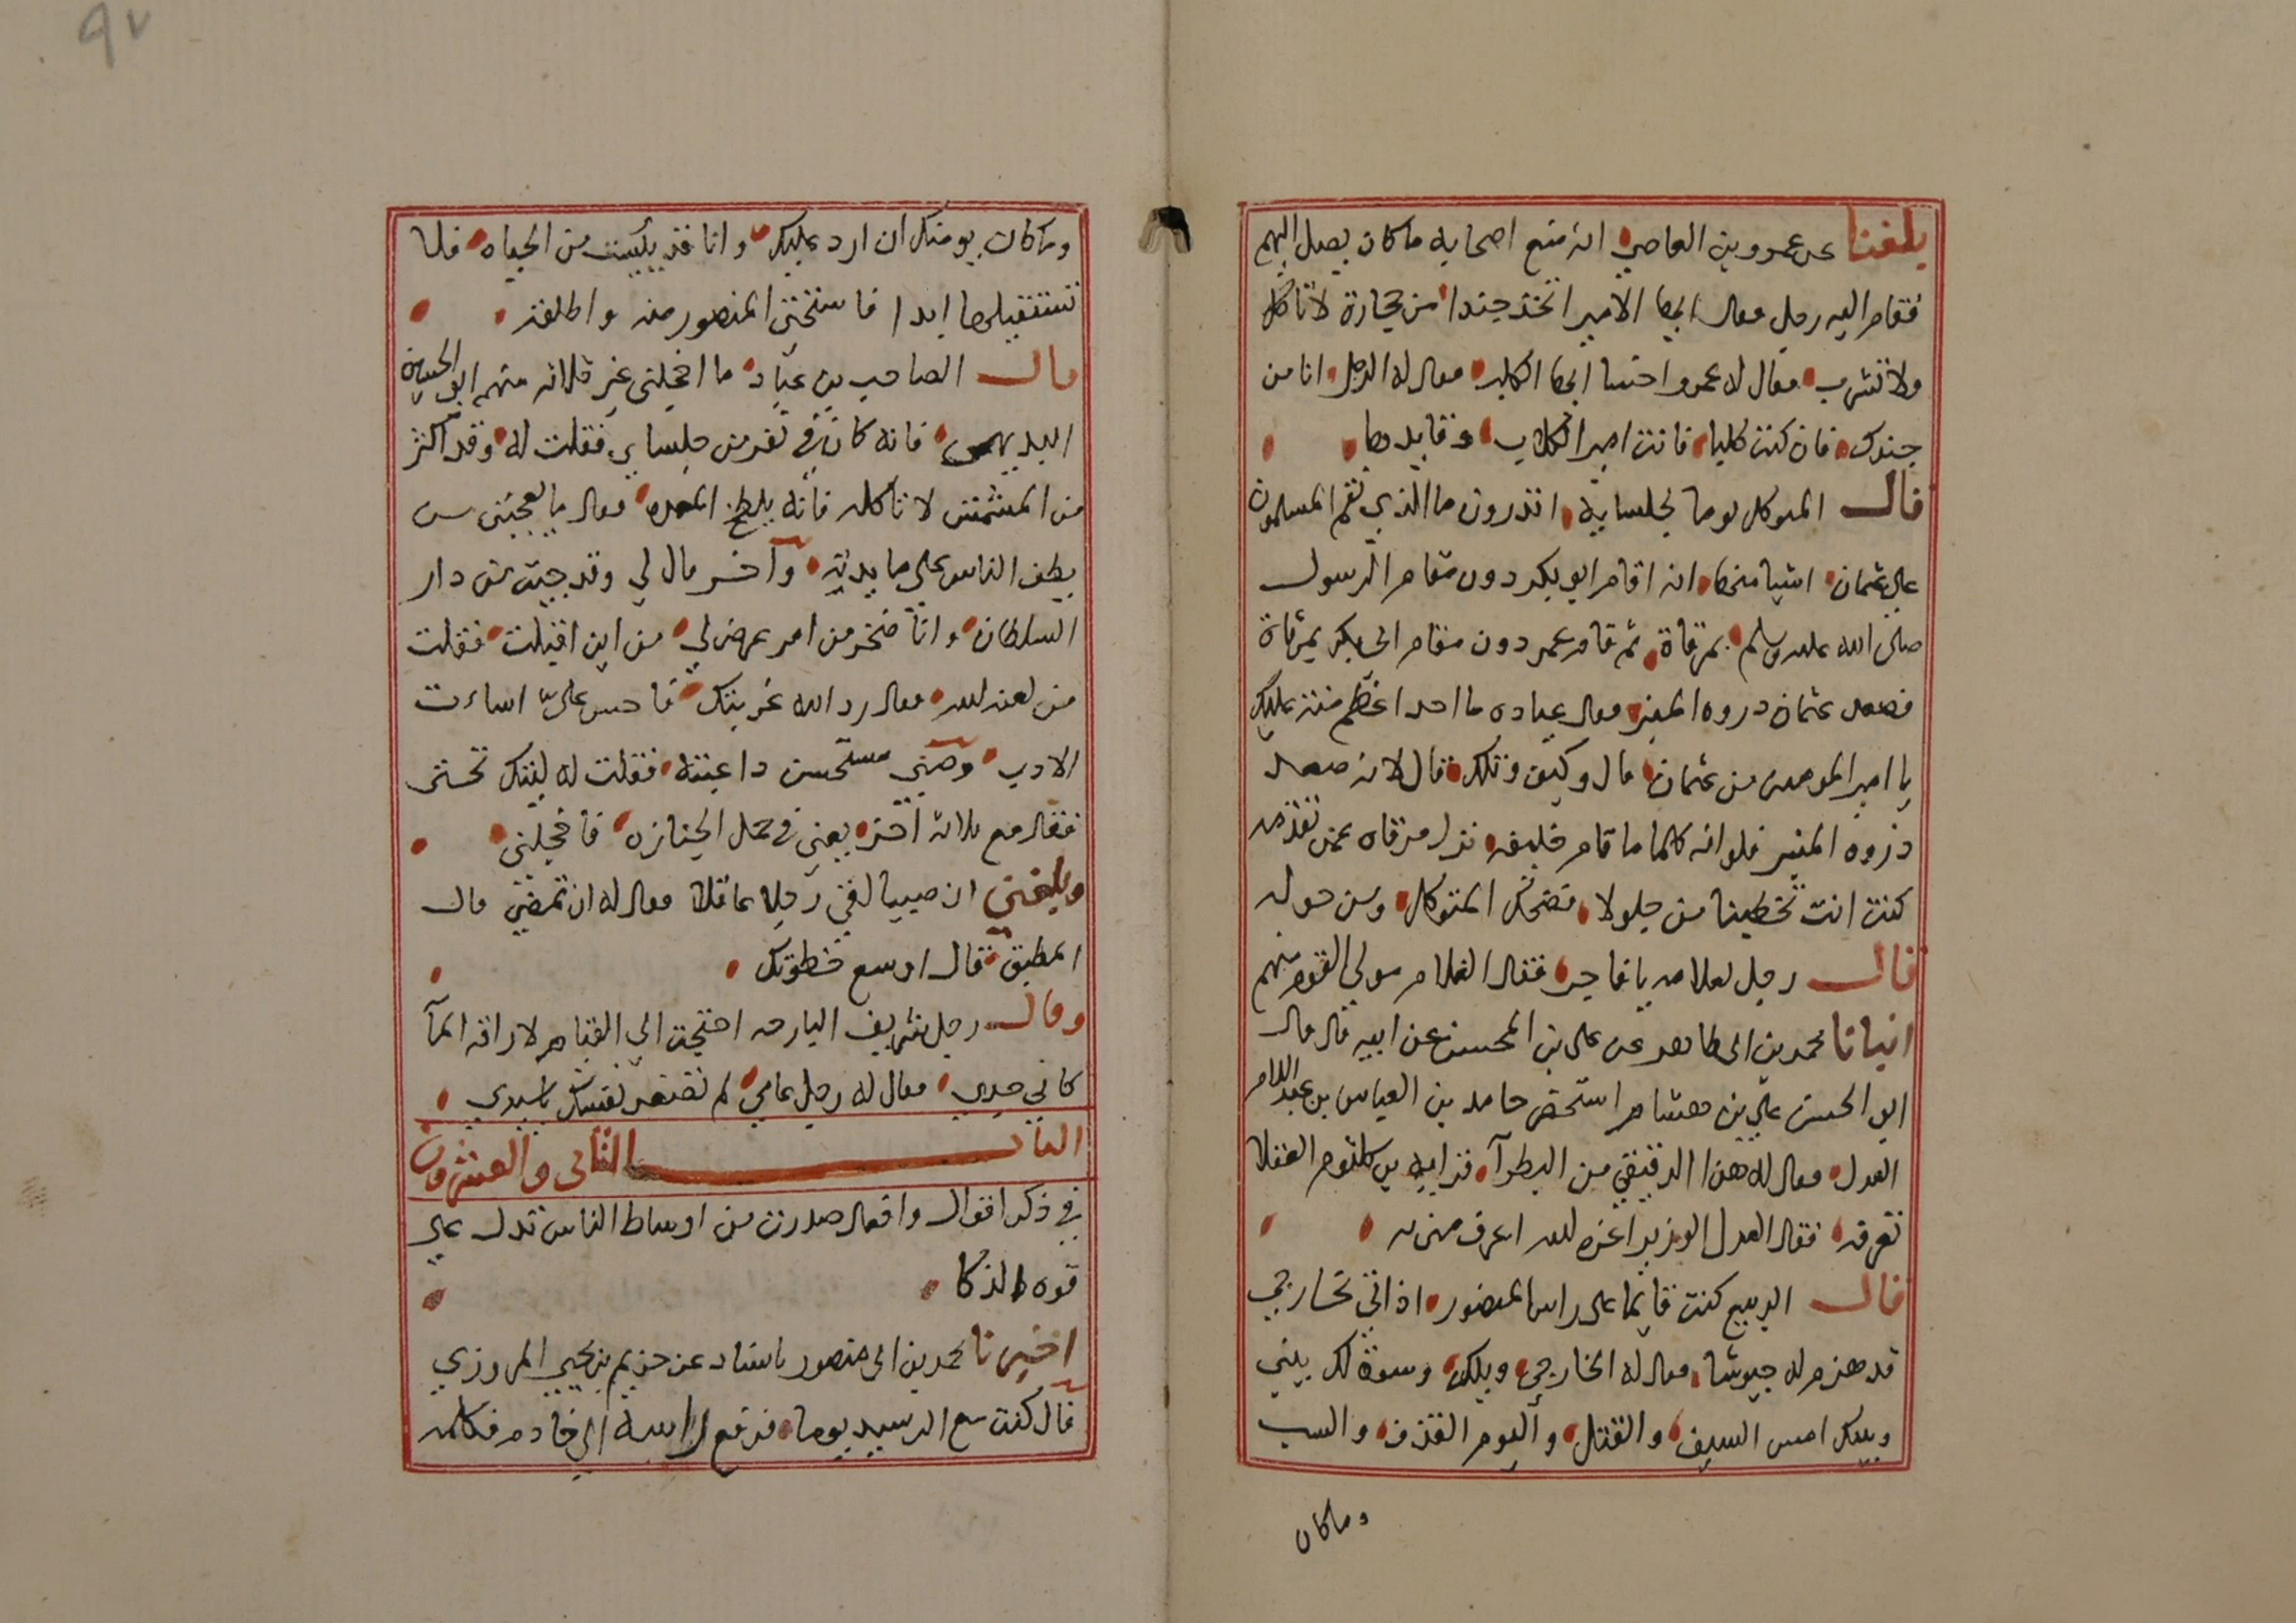 بلغنا عن عمرو بن العاصي انه منع اصحابه ما كان يصل اليهم
فقام اليه رجل فقال ايها الامير اتخذ جندا من حجارة لا تاكل
ولا تشرب فقال له عمرو اخسا ايها الكلب فقال له الرجل انا من
جندك فان كنت كلبا فانت امير الكلاب وقايدها
قال المتوكل يوما لجلسايه اتدرون ما الذي نقم المسلمون
على عثمان اشيا منها انه اقام ابو بكر دون مقام الرسول
صلى الله عليه وسلم بمرقاة ثم قام عمر دون مقام ابي بكر بمرقاة
فصعد عثمان دروه المنبر فقال عباده ما احد اعظم منة عليك
يا امير المومنين من عثمان قال وكيف ذلك قال لانه صعد
ذروه المنبر فلو انه كلما قام خليفه نزل مرقاه عمن تقدمه
كنت انت تخطبنا من جلولا فضحك المتوكل ومن حوله
قال رجل لغلامه يا فاجر فقال الغلام مولى القوم منهم
انبانا محمد بن ابي طاهر عن علي بن المحسن عن ابيه قال قال
ابو الحسن علي بن هشام استحض حامد بن العباس بن عبد السلام
العدل فقال له هذا الدقيقي من البطرآ قد ايه بن كلثوم العقلا
تعرفه فقال العدل الوزير اعزه الله اعرف مني به
قال الربيع كنت قايما على راس المنصور اذ اتي بخارجي
قد هزم له جيوشا فقال له الخارجي ويلك وسوة لك بيني
وبينك امس السيف والقتل واليوم القذف والسب
وما كان
٩٧
وما كان يومنك ان ارد عليك وانا قد يئست من الحياه فلا
تستقيلها ابدا فاستحى المنصور منه واطلقه
قال الصاحب بن عباد ما اخجلني غير ثلاثه منهم ابو الحسين
البديهي فانه كان في نفر من جلسايي فقلت له وقد اكثر
من المشمش لا تاكله فانه يلطخ المعده فقال ما يعجبني من
يطب الناس على مايدته وآخر قال لي وقد جيت من دار
السلطان وانا ضجر من امر عرض لي من اين اقبلت فقلت
من لعنه الله فقال رد الله غربتك فاحسن على اساءت
الادب وصبي مستحسن داعبته فقلت له ليتك تحتي
فقال مع ثلاثه اخر يعني في حمل الجنازه فاخجلني
وبلغني ان صبيا لقي رجلا عاقلا فقال له اين تمضي قال
المطبق فقال اوسع خطوتك
وقال رجل شريف البارحه احتجت الى القيام لاراقه المآ
كاني جدي فقال له رجل عامي لم تصغر نفسك ياسيدي
الباب الثاني والعشرون
في ذكر اقوال وافعال صدرت من اوساط الناس تدل على
قوه الذكا
اخبرنا محمد بن ابي منصور باسناد عن حزيم بن يحيي المروزي
قال كنت مع الرسيد يوما فرفع راسه الى خادم فكلمه